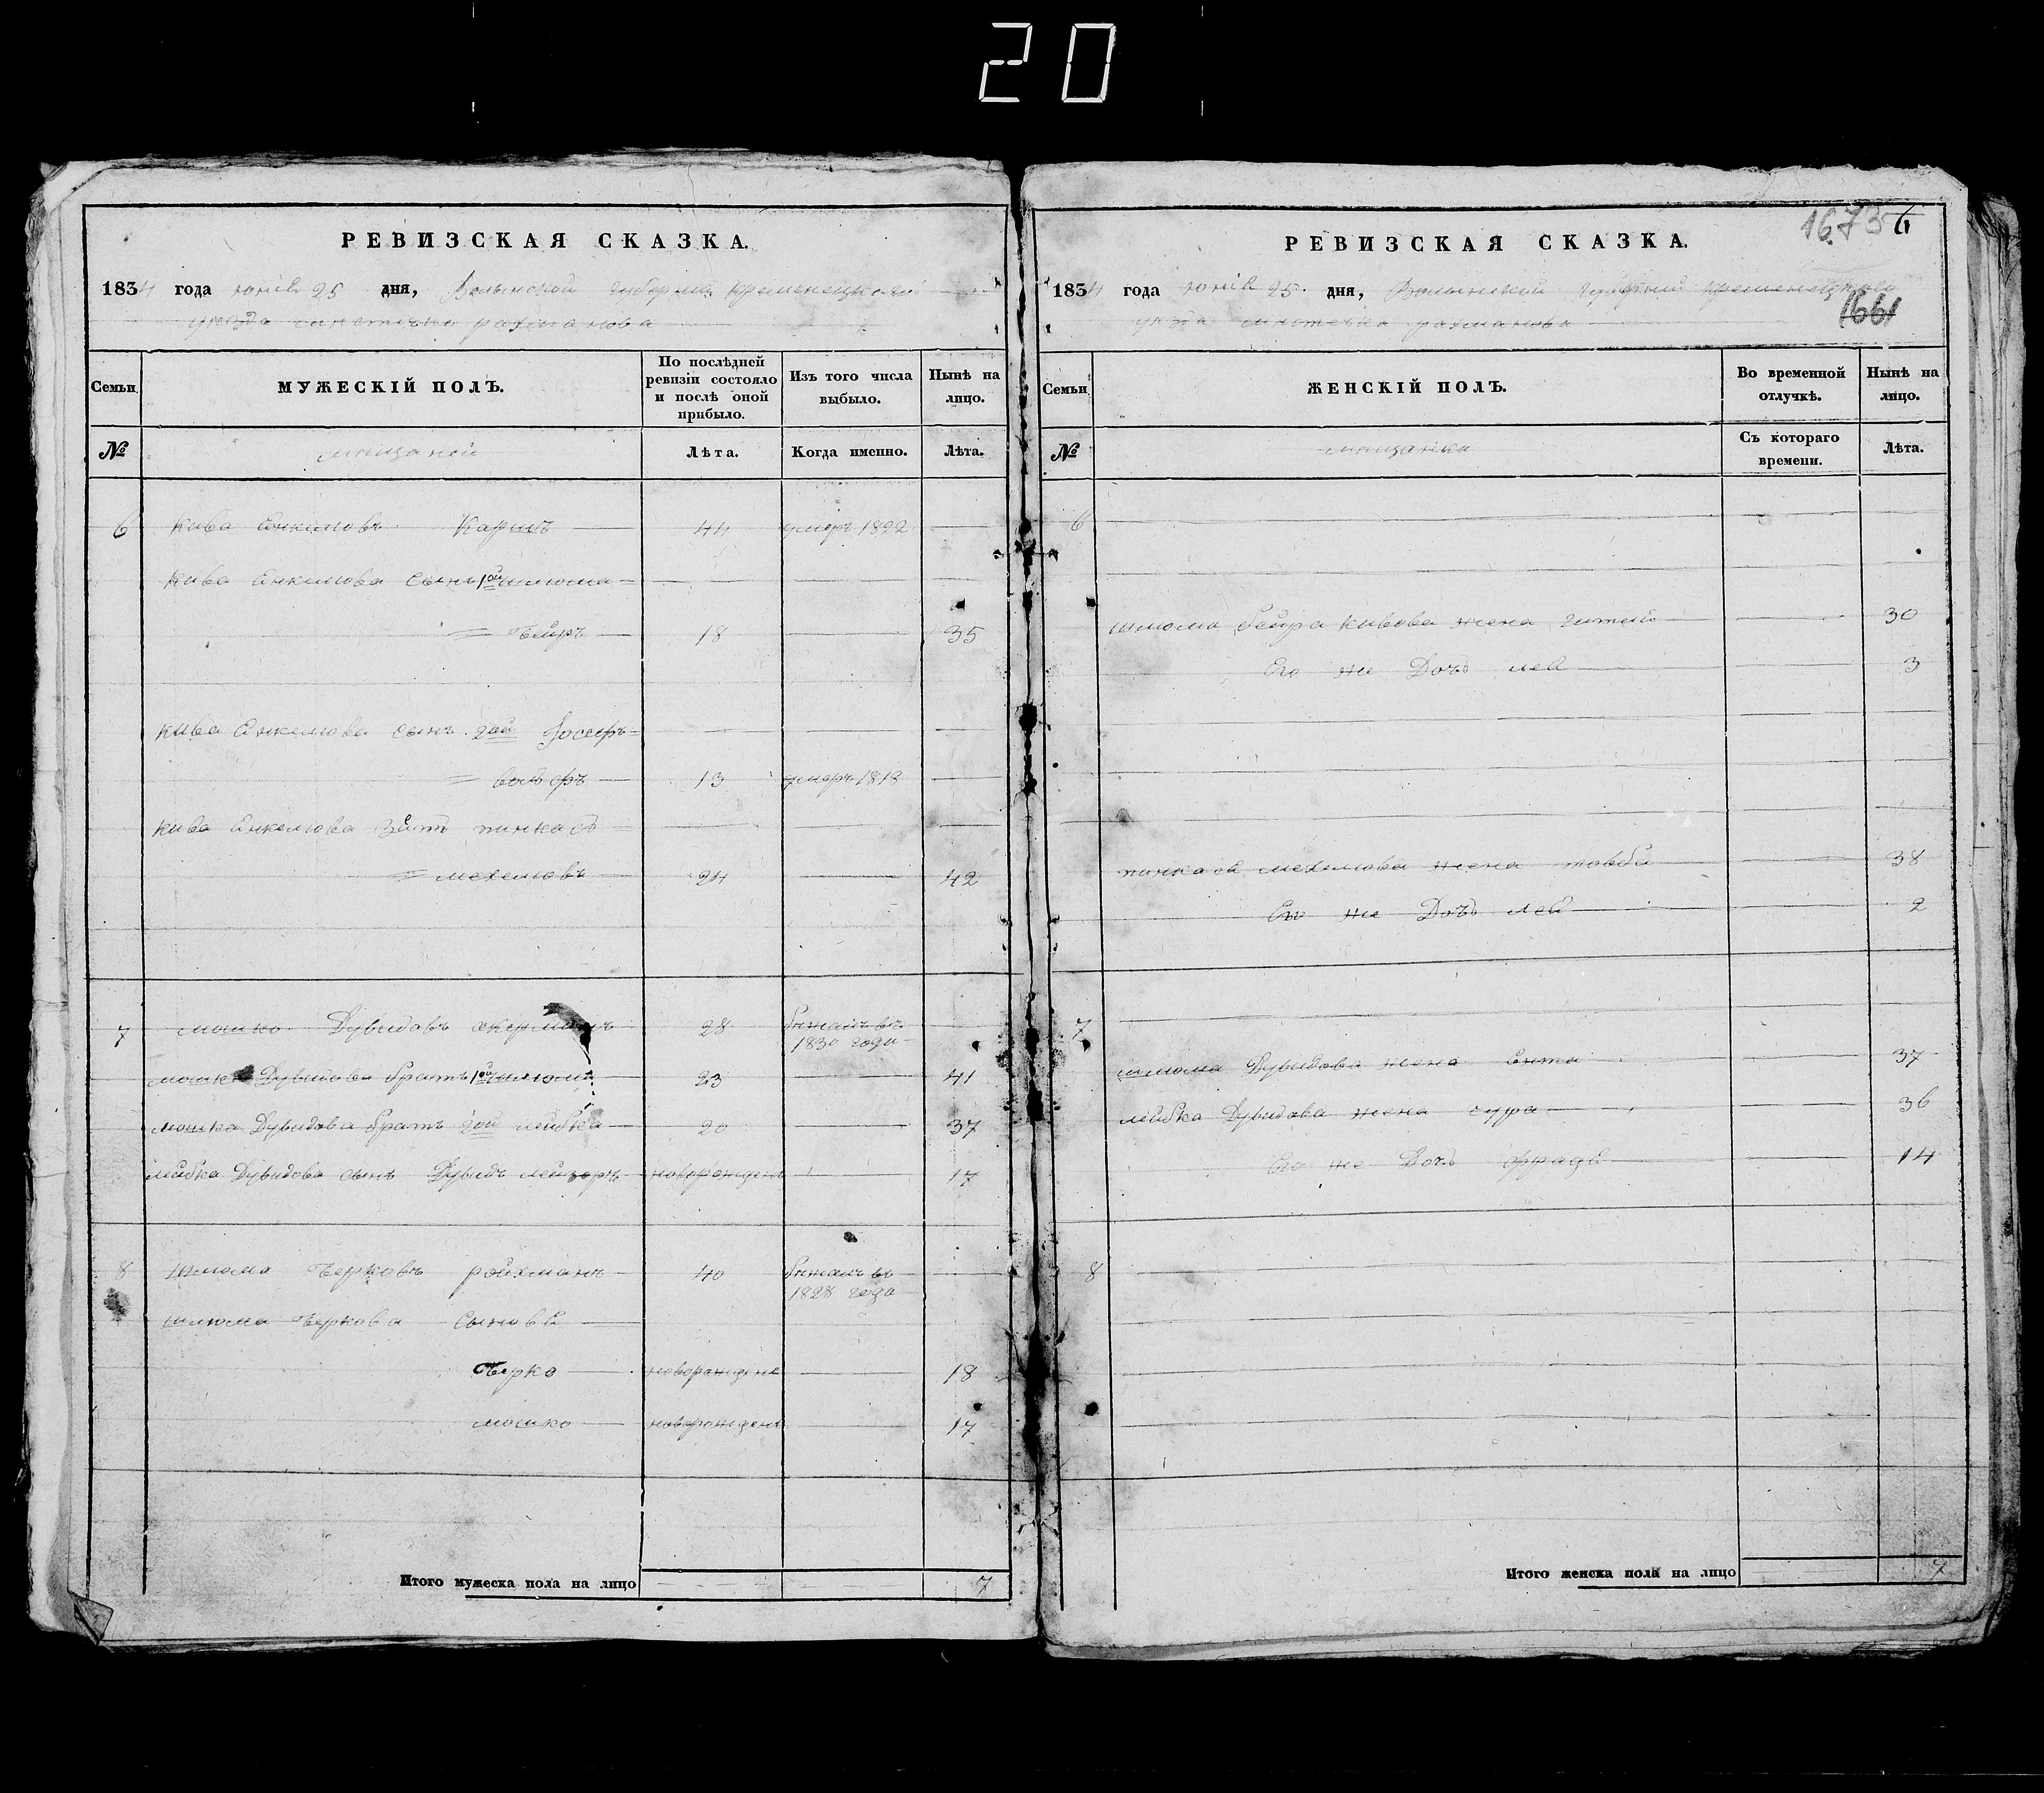 20
РЕВИЗСКАЯ СКАЗКА.
1834 года юнія 25 дня, Волынской Губерніи Кременецкаго
уезда местечка рахманова
Семьи
МУЖЕСКІЙ ПОЛЪ.
По послѣдней ревизіи состояло и послѣ оной прибыло.
Изъ того числа выбыло.
Нынѣ на лицо.
№
Лѣта.
Когда именно.
Лѣта.
6 Кива Янкелювъ 44 умеръ 1822
Кива Янкелюва сынъ 1ой шлюма
= Бейръ 18 35
Кива Янкелюва сынъ 2ой Іосефъ
= вольфъ 13 умеръ 1818
Кива Янкелюва зять пинкасъ
= мехелювъ 24 42
7 мошко Дувидовъ 28 бежалъ въ 1830 годи
мошка Дувидова братъ 1ой шлюма 23 41
мошка Дувидова братъ 2ой лейбка 20 37
лейбка Дувидова сынъ Дувидъ лейзоръ новорожденъ 17
8 шлюма Берковъ ройхманъ 40 бежалъ въ 1828 года
шлюма Беркова Сыновя
Берко новорожденъ 18
мошко новорожденъ 17
Итого мужеска пола на лицо 7
1673 6
РЕВИЗСКАЯ СКАЗКА.
1834 года юнія 25 дня, Волынской Губерніи Кременецкаго
уезда местечка рахманова
1661
Семьи
ЖЕНСКІЙ ПОЛЪ.
Во временной отлучкѣ.
Нынѣ на лицо.
№
мещанки
Съ котораго времени.
Лѣта.
6
шлюма Бейра Кивова жена 30
Его же Дочъ лея 3
пинкаса мехелюва жена товба 38
Его же Дочъ лея 2
7
шлюма Дувидова жена 37
лейбка Дувидова жена сура 36
Его же Дочъ 14
8
Итого женска пола на лицо 7